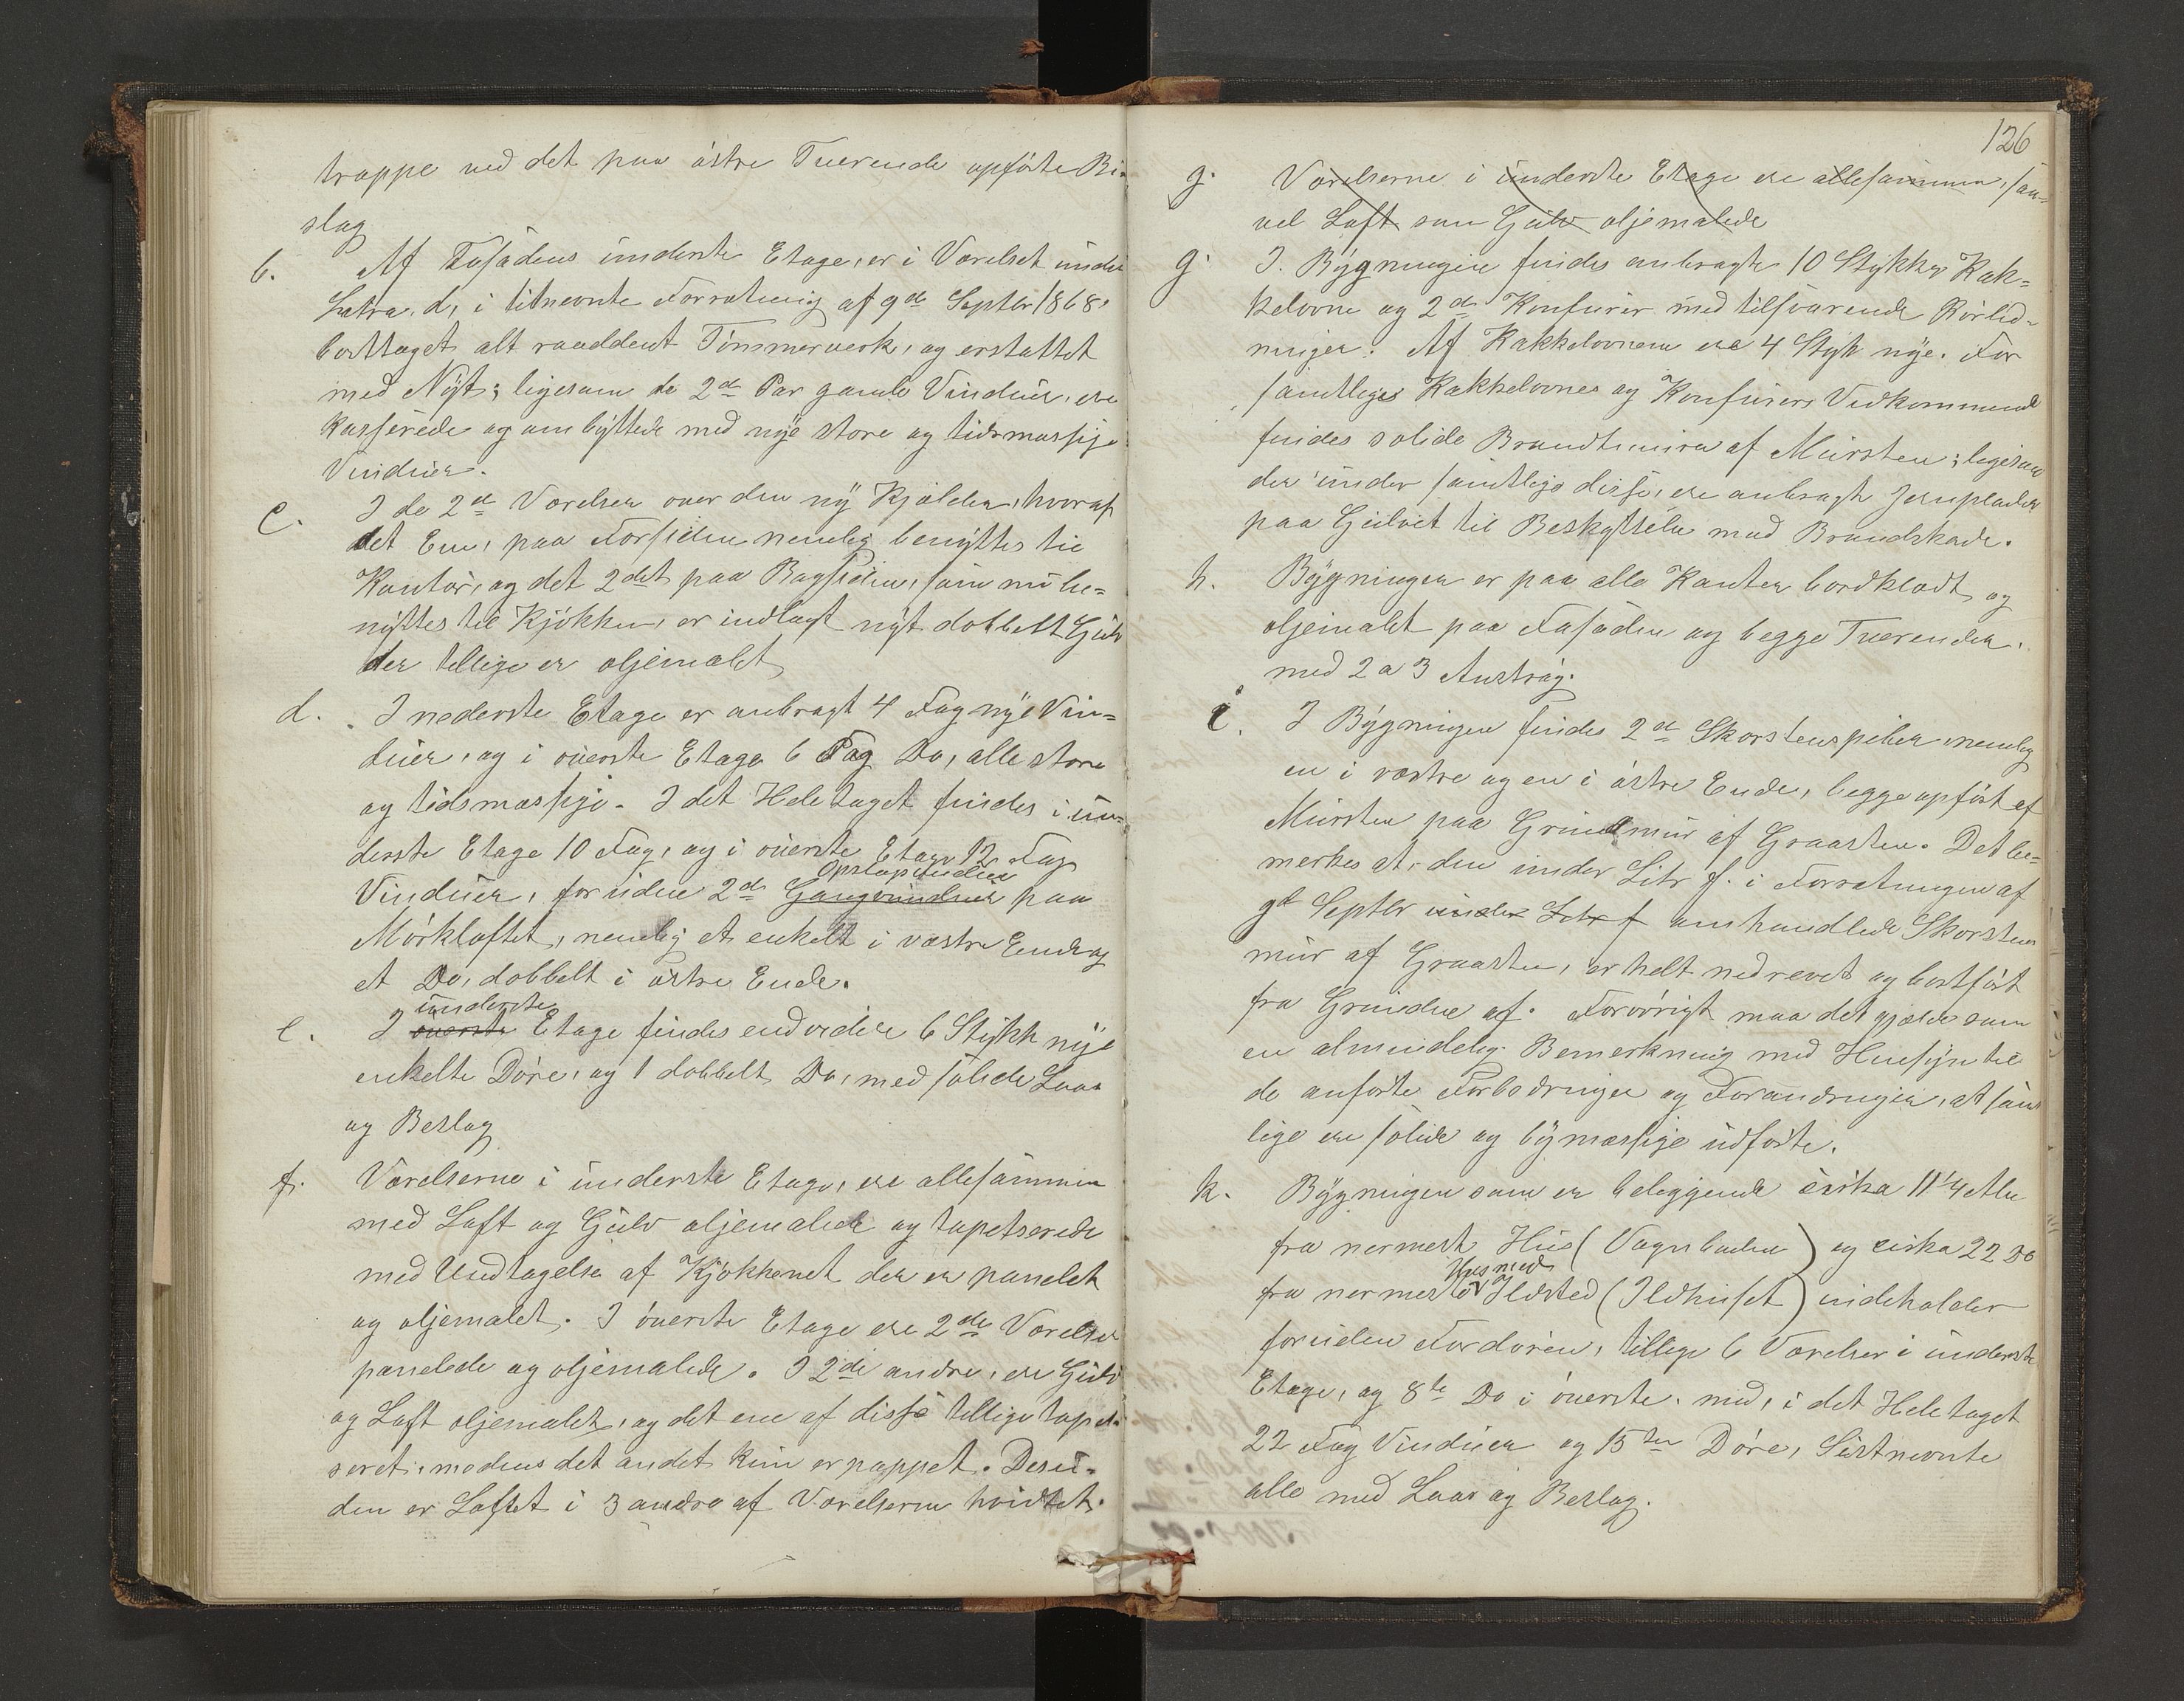 trappe ved det paa östre Tverende opförte Bi-
slag
b. Af Fasadens underste Etage, er i Værelset under
Littra, d, i titnevnte Forretning af 9de Septbr 1868,
borttaget alt raaddent Tömmerverk, og erstattet
med Nyt; ligesom de 2de Par gamle Vinduer, ere
kasserede og ombyttede med nye store og tidsmæssige
Vinduer.
c. I de 2de Værelser over den ny Kjælder, hvoraf
det Ene, paa Forsiden nemlig benyttes til
Kontor, og det 2det paa Bagsiden, som nu be-
nyttes til Kjökken, er indlagt nyt dobbelt Gulv
der tillige er oljemalet
d. I nederste Etage er anbragt 4 Fag nye Vin-
duer, og i överste Etage 6 Fag Do, alle store
og tidsmæssige. I det Heletaget findes i un-
derste Etage 10 Fag, og i överste Etage 12 Fag
Vinduer, foruden 2de Gangvinduer paa
Mörkloftet, nemlig et enkelt i vestre Ende og
et Do, dobbelt i östre Ende.
underste
e. I överste Etage findes endvidere 6 Stykk nye
enkelte Döre, og 1 dobbelt Do, med solide Laas
og Beslag
f. Værelserne i underste Etage, ere allesammen
med Loft og Gulv oljemalede og tapetserede
med Undtagelse af Kjökkenet der er panelet
og oljemalet. I överste Etage ere 2de Værelser
panelede og oljemalede. I 2de andre, ere Gulv
og Loft oljemalet, og det ene af disse tillige tapet-
seret, medens det andet kun er pappet. Desu-
den er Loftet i 3 andre af Værelserne hvidtet.
126
g. Værelserne i underste Etage ere allesammen, saa-
vel Loft som Gulv oljemalede
g. I Bygningen findes anbragte 10 Stykker Kak-
kelovne og 2de Komfurer med tilsvarende Rörled-
ninger. Af Kakkelovnene ere 4 Styk nye. For
samtlige Kakkelovnes og Komfurers Vedkommende
findes solide Brandtmure af Mursten; ligesom
der under samtlige disse, ere anbragt Jernplader
paa Gulvet til Beskyttelse mod Brandskade.
h. Bygningen er paa alle Kanter bordklædt, og
oljemalet paa Fasaden og begge Tverender,
med 2 a 3 Anströg.
i. I Bygningen findes 2de Skorstenspiber nemlig
en i vestre og en i östre Ende, begge opfört af
Mursten paa Grundmur af Graasten. Det be-
merkes at, den under Litr f. i Forretningen af
9de Septbr under Litr f omhandlede Skorstens
mur af Graasten, er helt nedrevet og bortfört
fra Grunden af. Forövrigt maa det gjelde som
en almindelig Bemerkning med Hensyn til
de anförte Forbedringer og Forandringer, at sam-
lige ere solide og bymæssige udförte.
k. Bygningen som er beliggende cirka 11 1/4 Alen
fra nermeste Hus (Vognboden) og cirka 22 Do
Hus med
fra nermeste Ildsted (Ildhuset) indeholder
foruden Fordören, tillige 6 Værelser i underste
Etage, og 8te Do i överste, med, i det Heletaget
22 Fag Vinduer og 15ten Döre, Sistnevnte
alle med Laas og Beslag.